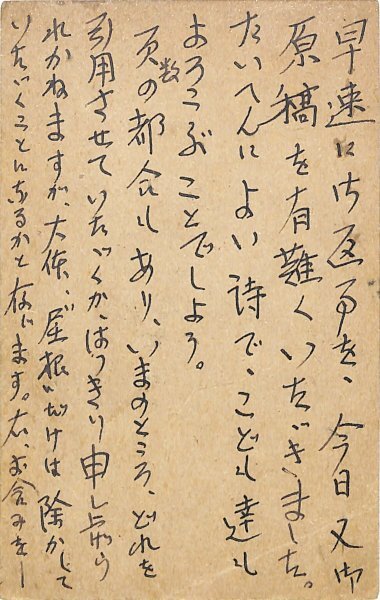 早速に御返事を、今日又御
原稿を有難くいたゞきました。
たいへんによい詩で、こども達も
よろこぶことでしよう。
頁数の都合もあり、いまのところ、どれを
引用させていたゞくか、はつきり申し上げら
れかねますが、大体、“屋根”だけは除かして
いたゞくことになるかと存じます。右、お含みをー